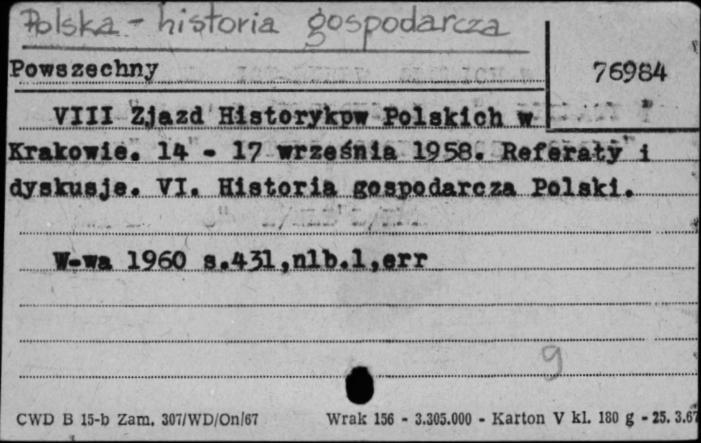 Polska - historia gospodarcza
Powszechny
76984
VIII Zjazd Historykow Polskich w
Krakowie. 14 - 17 września 1958. Referaty i
dyskusje. VI. Historia gospodarcza Polski.
W-wa 1960 s.431,nlb.1,err
9
CWD B 15-b Zam. 307/WD/On/67 Wrak 156 - 3.305.000 - Karton V kl. 180 g - 25. 3.67